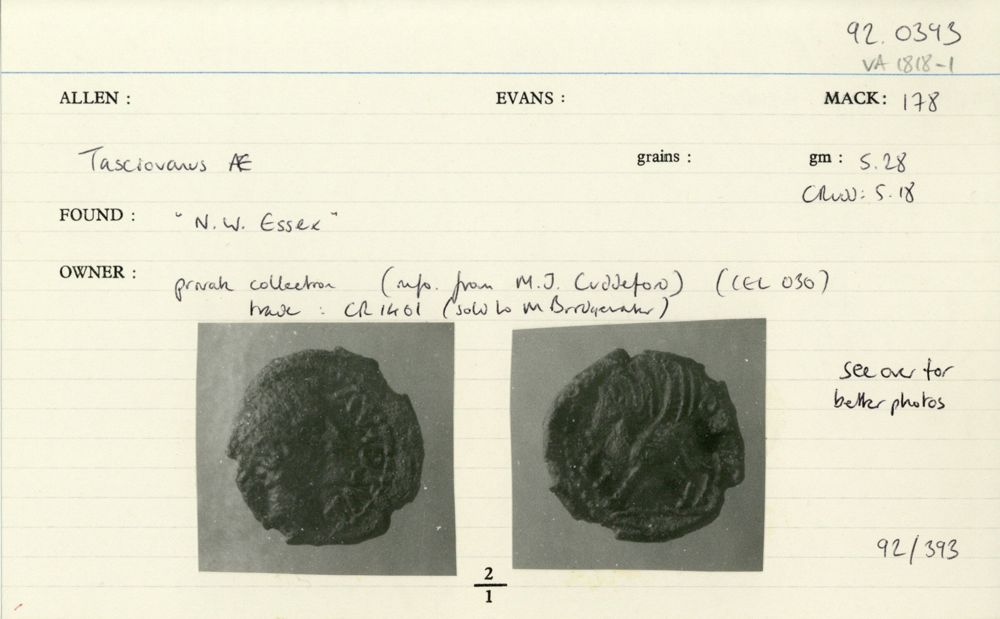 92.0393
VA 1818-1
ALLEN : EVANS : MACK: 178
Tasciovanus Æ grains : gm : 5.28
CRWD: 5.18
FOUND : "N.W. Essex"
OWNER : private collection (info. from M.J. Cuddeford) (CEL 030)
trade : CR 1401 (sold to M Bridgewater)
see over for
better photos
92/393
2
1